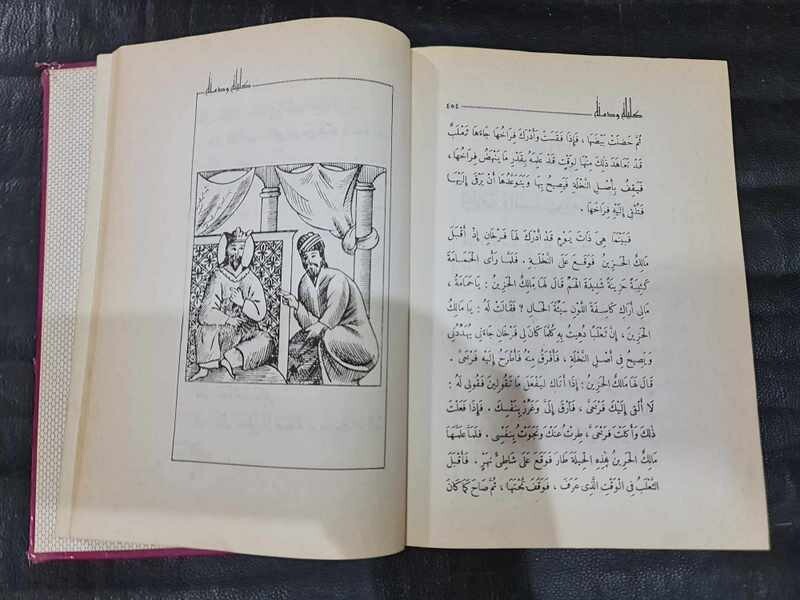 كليلة ودمنة
كليلة ودمنة
٤٥٤
ثُمَّ حَضَنَتْ بَيْضَهَا ، فَإِذَا فَقَسَتْ وَأَدْرَكَ فِرَاخُهَا جَاءَهَا ثَعْلَبٌ
قَدْ تَعَاهَدَ ذَلِكَ مِنْهَا لِوَقْتٍ قَدْ عَلِمَهُ بِقَدْرِ مَا يَنْهَضُ فِرَاخُهَا ،
فَيَقِفُ بِأَصْلِ النَّخْلَةِ فَيَصِيحُ بِهَا وَيَتَوَعَّدُهَا أَنْ يَرْقَى إِلَيْهَا
فَتُلْقِى إِلَيْهِ فِرَاخَهَا .
فَبَيْنَمَا هِىَ ذَاتَ يَوْمٍ قَدْ أَدْرَكَ لَهَا فَرْخَانِ إِذْ أَقْبَلَ
مَالِكٌ الحَزِينُ فَوَقَعَ عَلَى النَّخْلَةِ . فَلَمَّا رَأَى الحَمَامَةَ
كَئِيبَةً حَزِينَةً شَدِيدَةَ الهَمِّ قَالَ لَهَا مَالِكٌ الحَزِينُ : يَا حَمَامَةُ ،
مَالِى أَرَاكِ كَاسِفَةَ اللَّوْنِ سَيِّئَةَ الحَالِ ؟ فَقَالَتْ لَهُ : يَا مَالِكُ
الحَزِينُ ، إِنَّ ثَعْلَبًا دُهِيتُ بِهِ كُلَّمَا كَانَ لِى فَرْخَانِ جَاءَنِى يُهَدِّدُنِى
وَيَصِيحُ فِى أَصْلِ النَّخْلَةِ ، فَأَفْرَقُ مِنْهُ فَأَطْرَحُ إِلَيْهِ فَرْخَىَّ .
قَالَ لَهَا مَالِكٌ الحَزِينُ : إِذَا أَتَاكِ لِيَفْعَلَ مَا تَقُولِينَ فَقُولِى لَهُ :
لَا أُلْقِى إِلَيْكَ فَرْخَىَّ ، فَارْقَ إِلَىَّ وَغَرِّرْ بِنَفْسِكَ . فَإِذَا فَعَلْتَ
ذَلِكَ وَأَكَلْتَ فَرْخَىَّ ، طِرْتُ عَنْكَ وَنَجَوْتُ بِنَفْسِى . فَلَمَّا عَلَّمَهَا
مَالِكٌ الحَزِينُ هَذِهِ الحِيلَةَ طَارَ فَوَقَعَ عَلَى شَاطِئِ نَهْرٍ . فَأَقْبَلَ
الثَّعْلَبُ فِى الْوَقْتِ الَّذِى عَرَفَ ، فَوَقَفَ تَحْتَهَا ، ثُمَّ صَاحَ كَمَا كَانَ